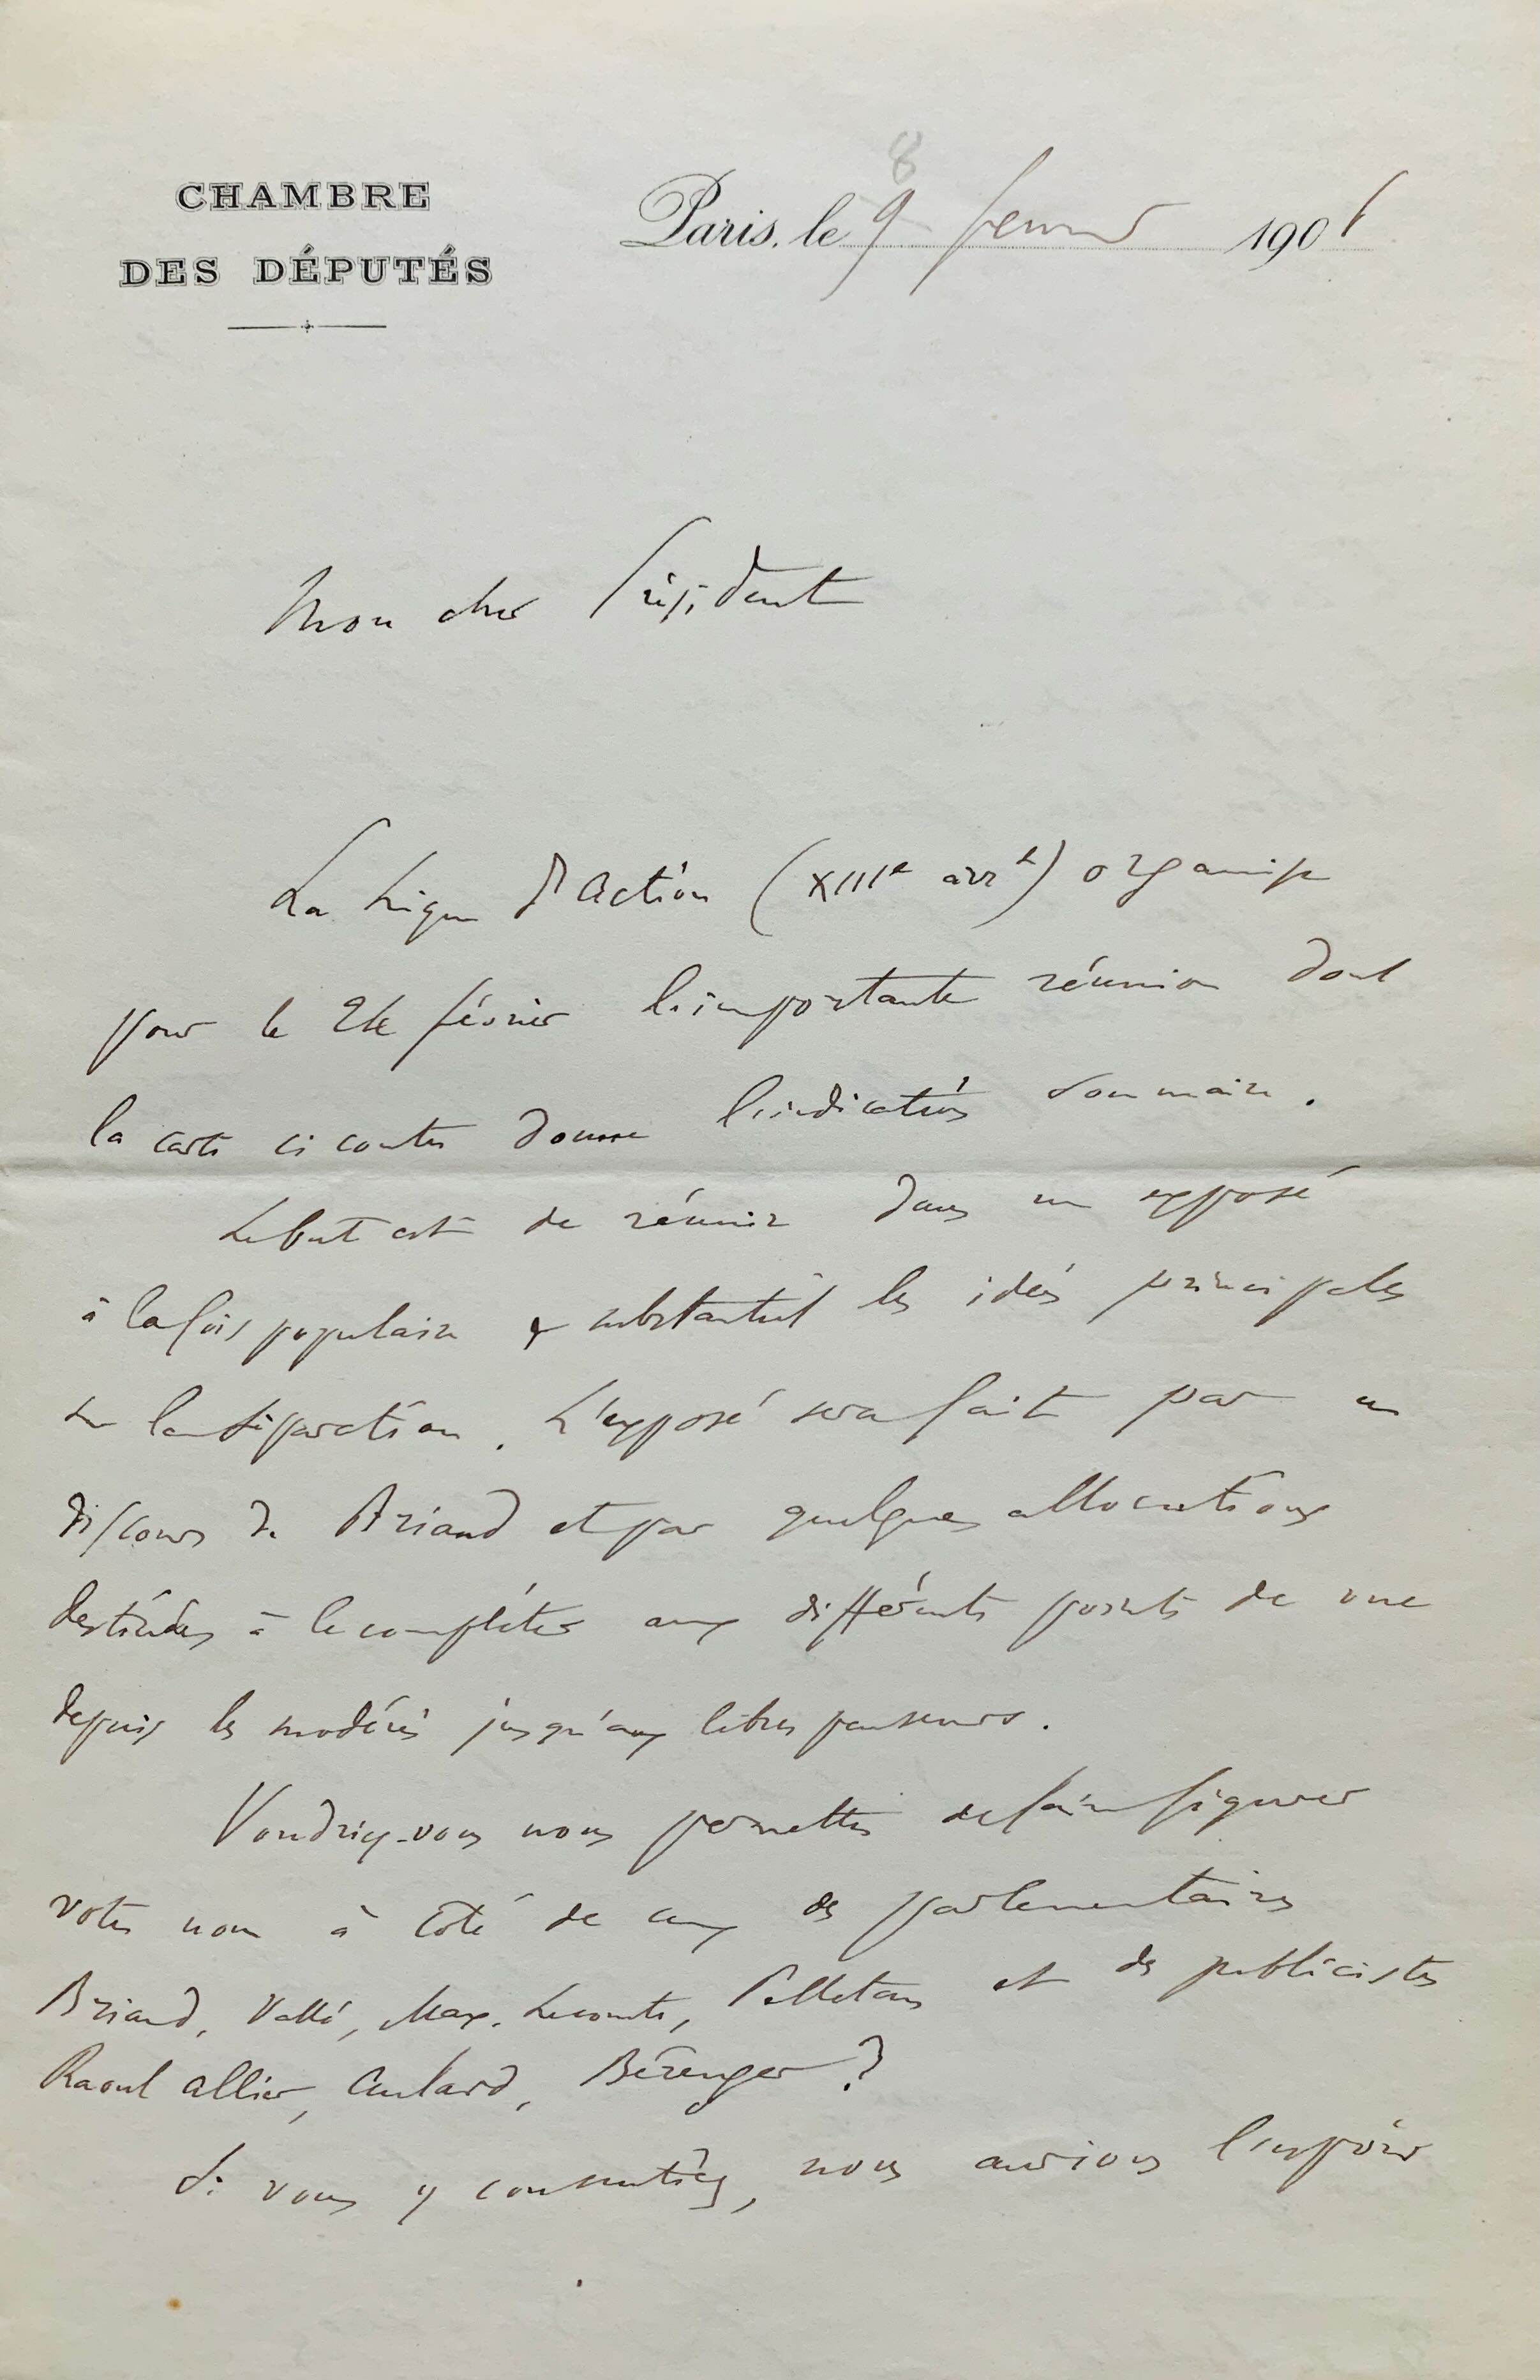 CHAMBRE
DES DÉPUTÉS
8
Paris, le 9 février 1906
Mon cher Président
La Ligue d'Action (XIIIe arrt) organise
pour le 24 février l'importante réunion dont
la carte ci contre donne l'indication sommaire.
Le but est de réunir dans un exposé
à la fois populaire & substantiel les idées principales
sur la séparation. L'exposé sera fait par un
discours de Briand et par quelques allocutions
destinées à le compléter aux différents points de vue
depuis les modérés jusqu'aux libres penseurs.
Voudriez-vous nous permettre de faire figurer
votre nom à côté de ceux des parlementaires
Briand, Vallé, Max. Lecomte, Pelletan et des publicistes
Raoul Allier, Aulard, Bérenger?
Si vous y consentiez, nous aurions l'espoir